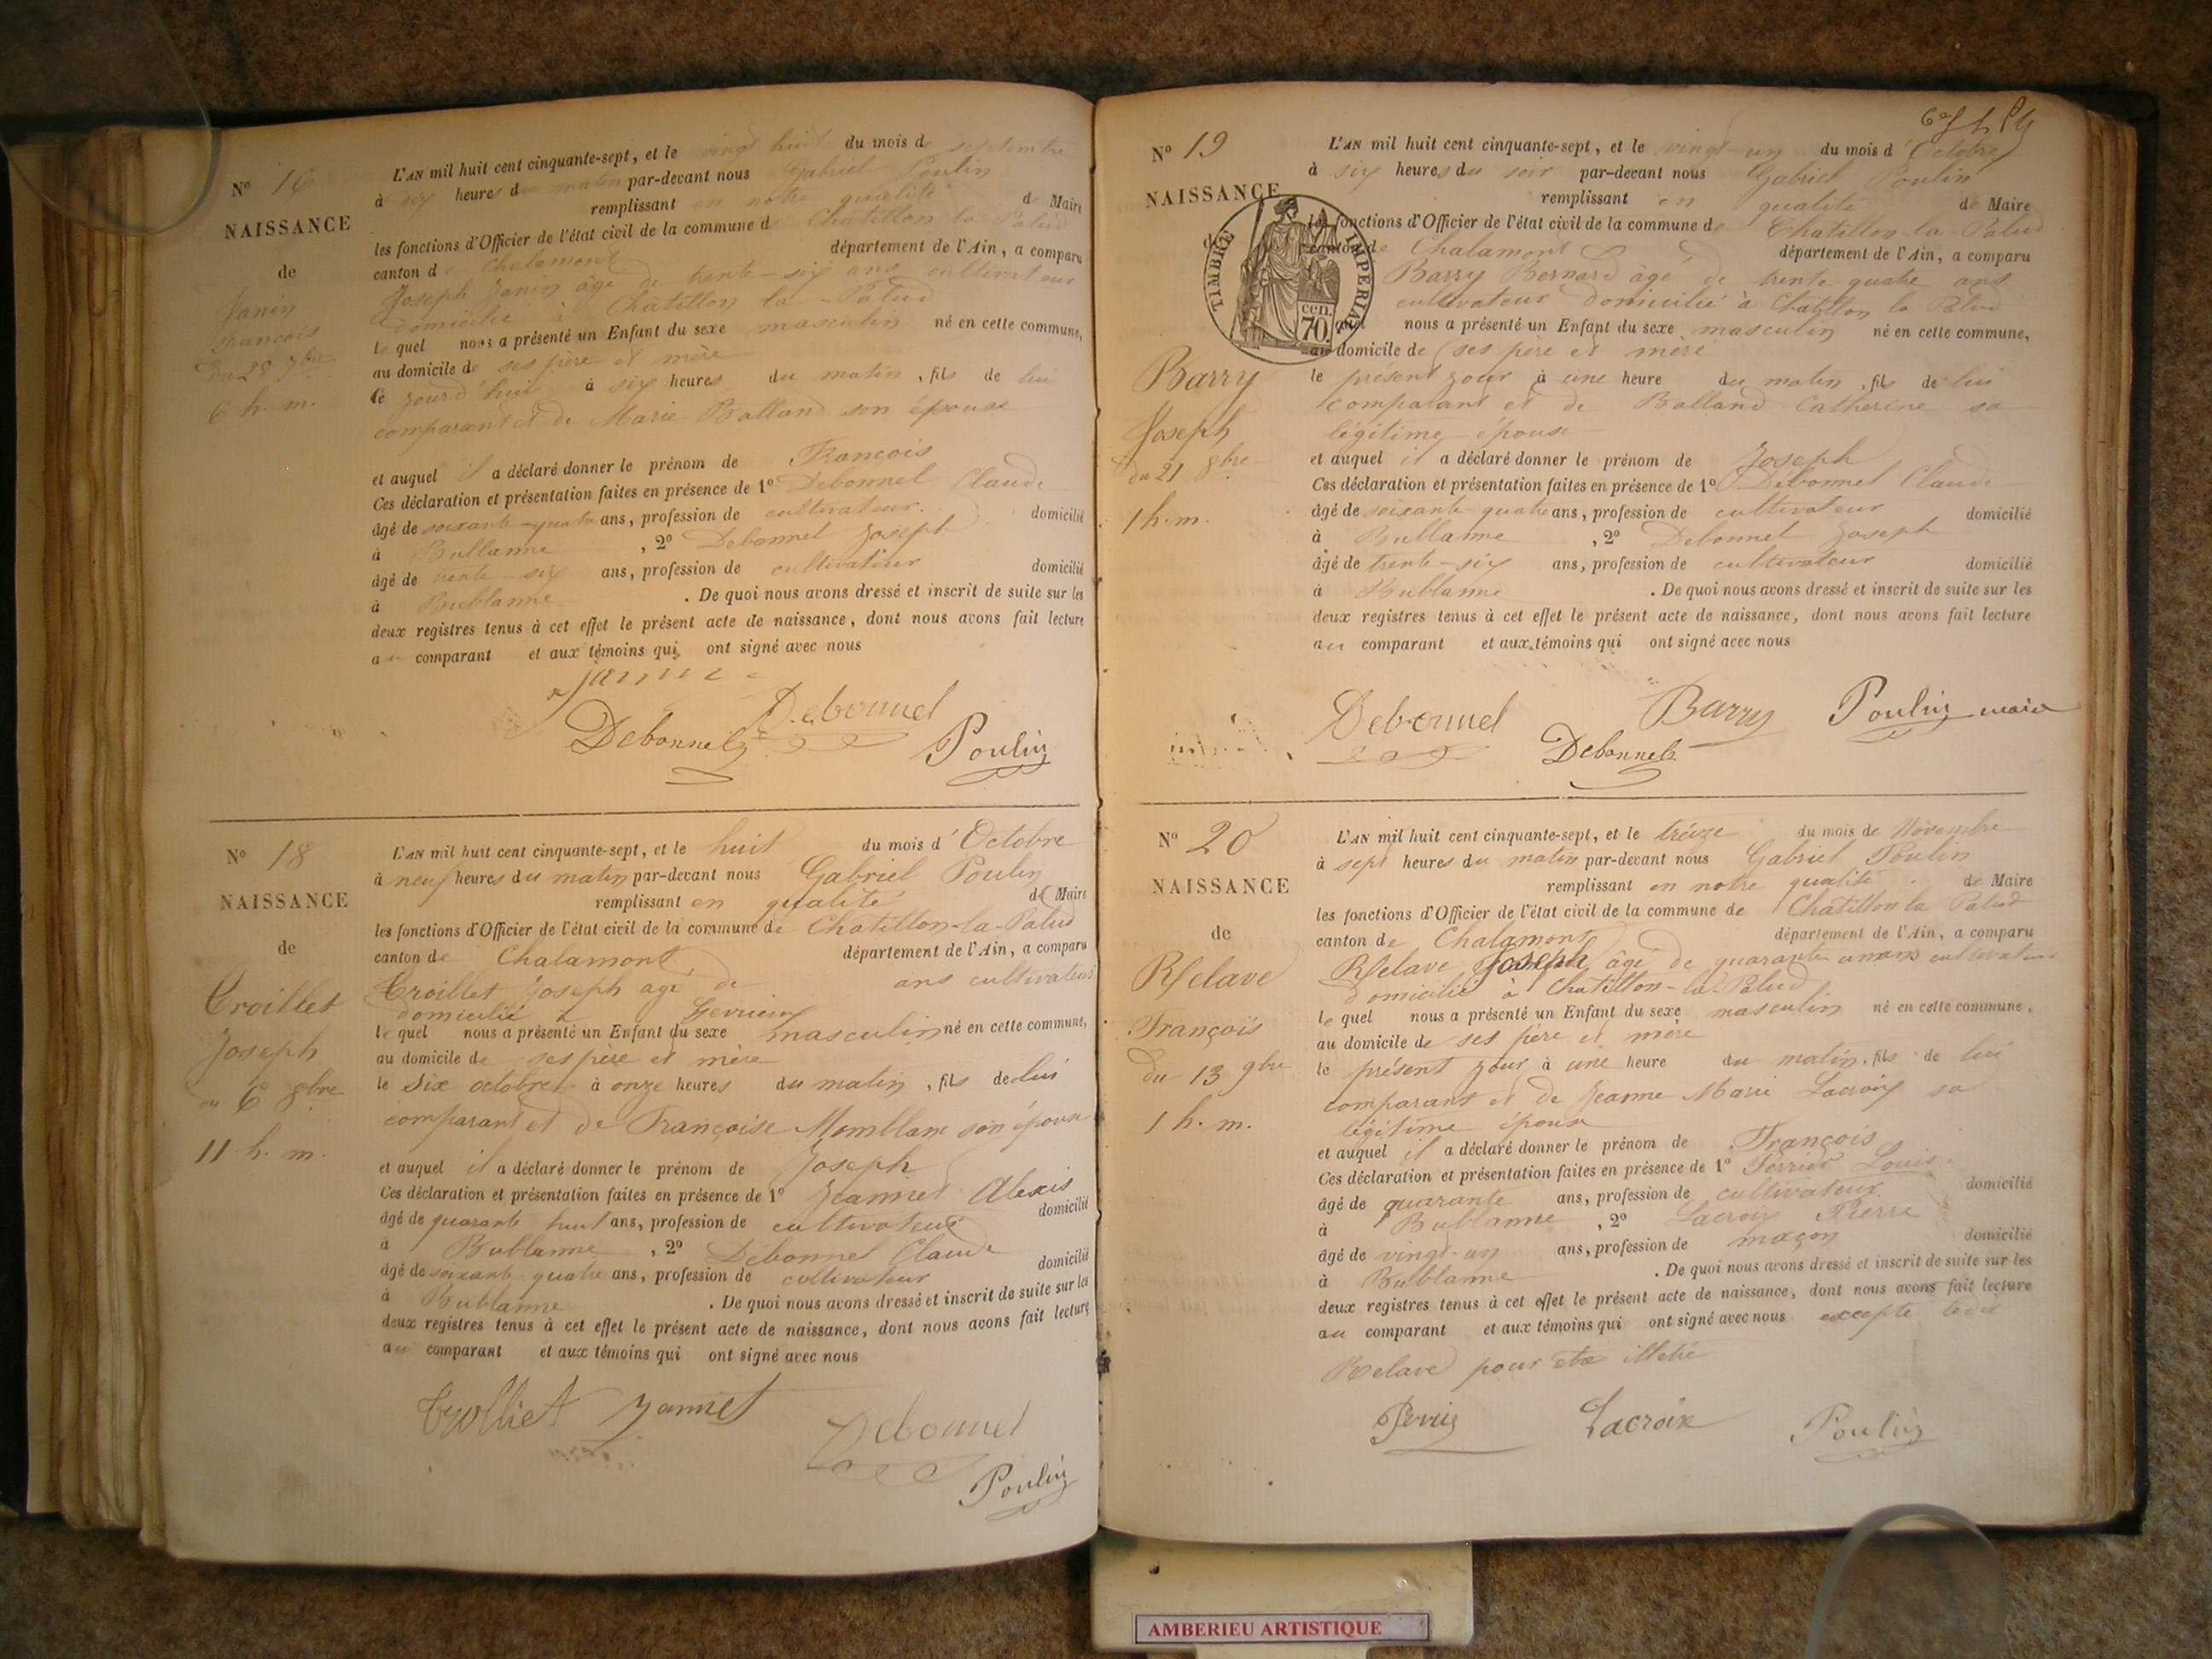 N° 16
NAISSANCE
de
Janin
François
du 28 7bre
6 h. m.
L'AN mil huit cent cinquante-sept, et le vingt huit du mois de septembre
à six heures du matin par-devant nous Gabriel Poulin
remplissant en notre qualité de Maire
les fonctions d'Officier de l'état civil de la commune de Chatillon la Palud
canton de Chalamont département de l'Ain, a comparu
Joseph Janin âgé de trente-six ans cultivateur
domicilié à Chatillon la-Palud
le quel nous a présenté un Enfant du sexe masculin né en cette commune,
au domicile de ses père et mère
Ce jourd'hui à six heures du matin, fils de lui
comparant et de Marie Balland son épouse
et auquel il a déclaré donner le prénom de François
Ces déclaration et présentation faites en présence de 1° Debonnel Claude
âgé de soixante-quatre ans, profession de cultivateur. domicilié
à Bublanne, 2° Debonnel Joseph
âgé de trente-six ans, profession de cultivateur domicilié
à Bublanne. De quoi nous avons dressé et inscrit de suite sur les
deux registres tenus à cet effet le présent acte de naissance, dont nous avons fait lecture
au comparant et aux témoins qui ont signé avec nous
Janin
Debonnel Debonnel Poulin
N° 18
NAISSANCE
de
Troillet
Joseph
du 6 8bre
11 h. m.
L'AN mil huit cent cinquante-sept, et le huit du mois d'Octobre
à neuf heures du matin par-devant nous Gabriel Poulin
remplissant en qualité de Maire
les fonctions d'Officier de l'état civil de la commune de Chatillon-la-Palud
canton de Chalamont département de l'Ain, a comparu
Troillet Joseph agé de ans cultivateur
domicilié à
le quel nous a présenté un Enfant du sexe masculin né en cette commune,
au domicile de ses père et mère
le Six octobre à onze heures du matin, fils de lui
comparant et de Françoise Momblanc son épouse
et auquel il a déclaré donner le prénom de Joseph
Ces déclaration et présentation faites en présence de 1° Jeannet Alexis
âgé de quarante huit ans, profession de cultivateur domicilié
à Bublanne, 2° Debonnel Claude
âgé de soixante quatre ans, profession de cultivateur domicilié
à Bublanne. De quoi nous avons dressé et inscrit de suite sur les
deux registres tenus à cet effet le présent acte de naissance, dont nous avons fait lecture
au comparant et aux témoins qui ont signé avec nous
Debonnel
Poulin
N° 19
NAISSANCE
TIMBRE IMPERIAL
cen.
70.
Barry
Joseph
du 21 8bre
1 h. m.
L'AN mil huit cent cinquante-sept, et le vingt-un du mois d'Octobre
à six heures du soir par-devant nous Gabriel Poulin
remplissant en qualité de Maire
les fonctions d'Officier de l'état civil de la commune de Chatillon-la-Palud
canton de Chalamont département de l'Ain, a comparu
Barry Bernard âgé de trente quatre ans
cultivateur domicilié à Chatillon la Palud
nous a présenté un Enfant du sexe masculin né en cette commune,
au domicile de ses père et mère
le présent jour à une heure du matin, fils de lui
comparant et de Balland Catherine sa
légitime épouse
et auquel il a déclaré donner le prénom de Joseph
Ces déclaration et présentation faites en présence de 1° Debonnel Claude
âgé de soixante quatre ans, profession de cultivateur domicilié
à Bublanne, 2° Debonnel Joseph
âgé de trente-six ans, profession de cultivateur domicilié
à Bublanne. De quoi nous avons dressé et inscrit de suite sur les
deux registres tenus à cet effet le présent acte de naissance, dont nous avons fait lecture
au comparant et aux témoins qui ont signé avec nous
Debonnel Barry Poulin maire
Debonnel
N° 20
NAISSANCE
de
Relave
François
du 13 9bre
1 h. m.
L'AN mil huit cent cinquante-sept, et le treize du mois de Novembre
à sept heures du matin par-devant nous Gabriel Poulin
remplissant en notre qualité de Maire
les fonctions d'Officier de l'état civil de la commune de Chatillon la Palud
canton de Chalamont département de l'Ain, a comparu
Relave Joseph âgé de quarante un ans cultivateur
domicilié à Chatillon-la-Palud
le quel nous a présenté un Enfant du sexe masculin né en cette commune,
au domicile de ses père et mère
le présent jour à une heure du matin, fils de lui
comparant et de Jeanne Marie Lacroix sa
légitime épouse
et auquel il a déclaré donner le prénom de François
Ces déclaration et présentation faites en présence de 1° Perrier Louis
âgé de quarante ans, profession de cultivateur domicilié
à Bublanne, 2° Lacroix Pierre
âgé de vingt-un ans, profession de maçon domicilié
à Bublanne. De quoi nous avons dressé et inscrit de suite sur les
deux registres tenus à cet effet le présent acte de naissance, dont nous avons fait lecture
au comparant et aux témoins qui ont signé avec nous excepté ledit
Relave pour être illetré
Lacroix Poulin
AMBERIEU ARTISTIQUE